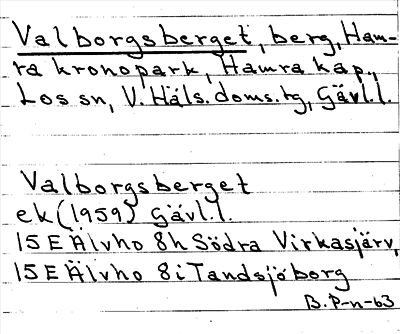 Valborgsberget, berg, Ham-
ra kronopark, Hamra kap.,
Los sn, V. Häls. doms.tg, Gävl.l.
Valborgsberget
ek (1959) Gävl.l.
15E Älvho 8h Södra Virkasjärv,
15E Älvho 8i Tandsjöborg
B.P-n-63